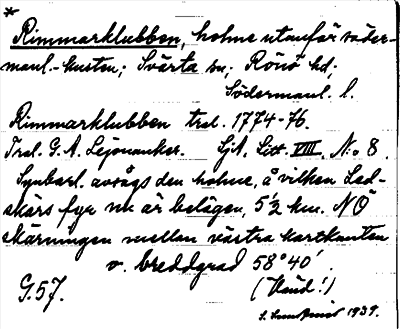 *
Rimmarklubben, holme utanför söder-
manl.-kusten; Svärta sn; Rönö hd;
Södermanl. l.
Rimmarklubben trol. 1774-76.
Trol. G. A. Lejonanker. SjA, Litt. VIII, N:o 8.
Synbarl. avsågs den holme, å vilken Led-
skärs fyr nu är belägen, 5½ km. NÖ
skärningen mellan västra kartkanten
o. breddgrad 58°40'.
G.57. (Känd!)
1939.